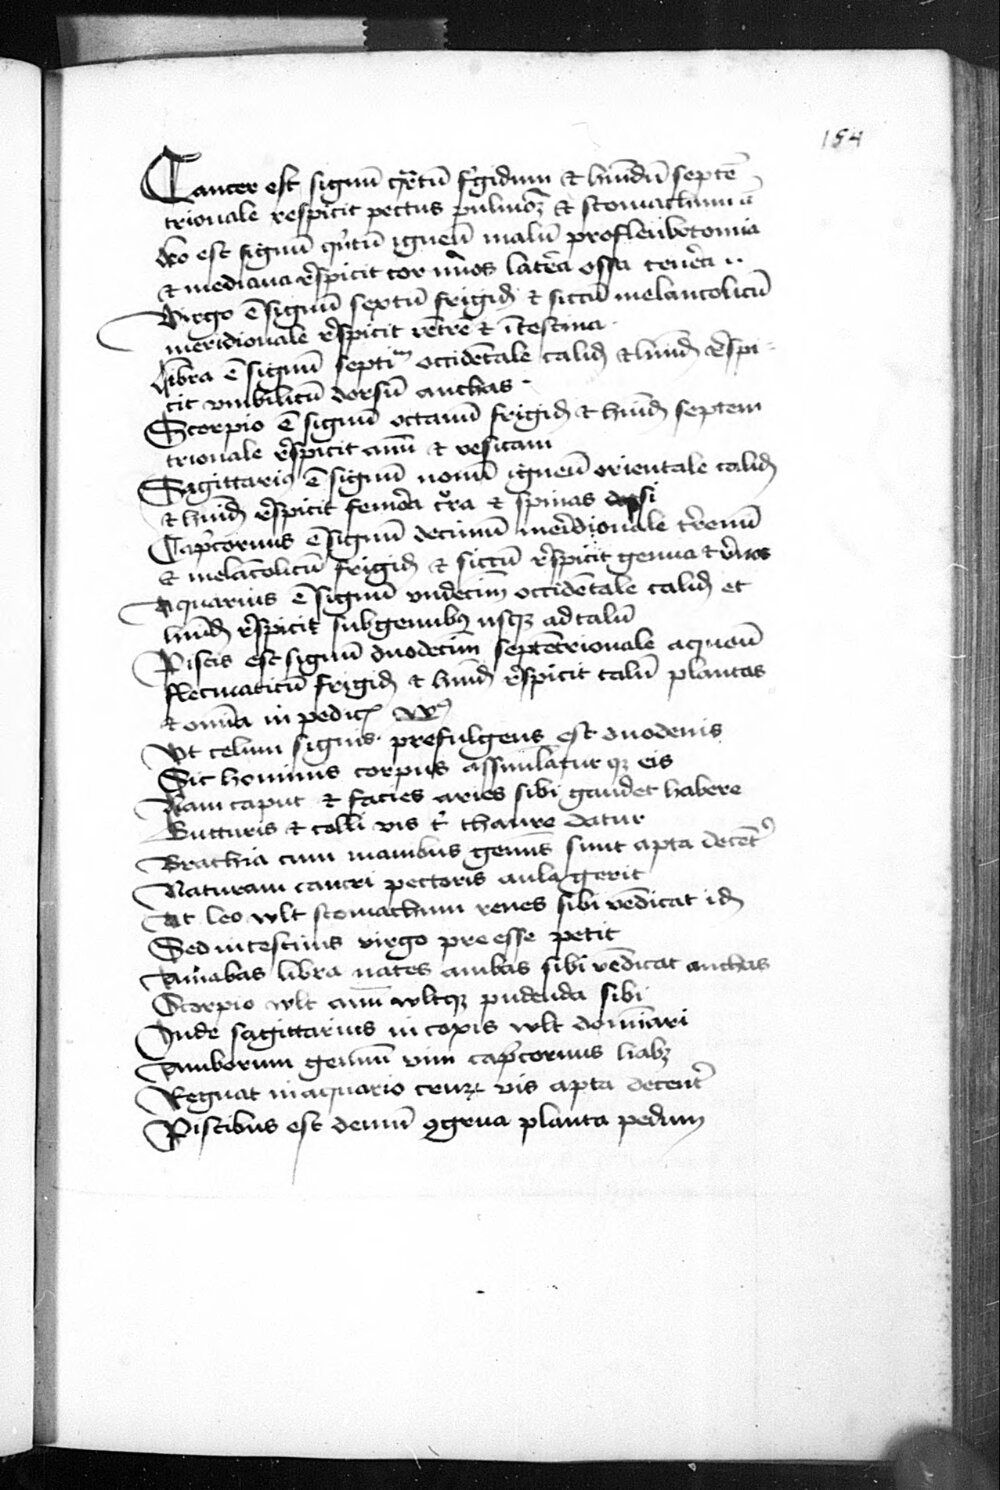 154
Cancer est signũ q̃rtũ frigidum et hũidũ septẽ
trionale respicit pectus pulmoꝝ et stomachum
Leo est signũ qⁱntũ igneũ malũ pro fleubotomia
et mediana r̃spicit cor latera ossa tenera
Virgo ẽ signũ sextũ frigidũ et siccũ melancolicũ
meridionale r̃spicit vẽtrẽ et ĩtestina
Libra ẽ signũ septiᵐ occidẽtale calid̃ et hũid̃ r̃spi-
cit vmbilicũ dorsũ anchas
Scorpio ẽ signũ octauũ frigid̃ et hũid̃ septem
trionale r̃spicit anũ et vesicam
Sagittariꝯ ẽ signũ nonũ igneũ orientale calid̃
et hũid̃ r̃spicit femora crura et spinas dorsi
Capⁱcornus ẽ signũ decimũ meridionale t̃renũ
et melãcolicũ frigid̃ et siccũ r̃spicit genua et
Aquarius ẽ signũ vndecim̃ occidẽtale calid̃ et
hũid̃ r̃spicit sub genubꝫ usqꝫ ad talũ
Piscis est signũ duodecim̃ septẽtrionale aqueũ
flecmaticũ frigid̃ et hũid̃ r̃spicit talũ plantas
et omĩa in pedic̃
Vt celum signis prefulgens est duodenis
Sic hominis corpus assimilatur qꝫ eis
Nam caput et facies aries sibi gaudet habere
Gutturis et colli vis tⁱ thaure datur
Brachia cum manibus gemis̃ sunt apta decẽtꝰ
Naturam cancri pectoris aula gerit
At leo wlt stomachum renes sibi vẽdicat id̃
Sed intestinis virgo preesse petit
Ambas libra nates ambas sibi vẽdicat anchas
Scorpio wlt anũ wltqꝫ pudenda sibi
Inde sagittarius in coxis wlt domĩari
Amborum genuũ vim capⁱcornus habꝫ
Regnat in aquario cruꝝ vis apta decentʳ
Piscibus est demũ ꝯgrua planta pedum